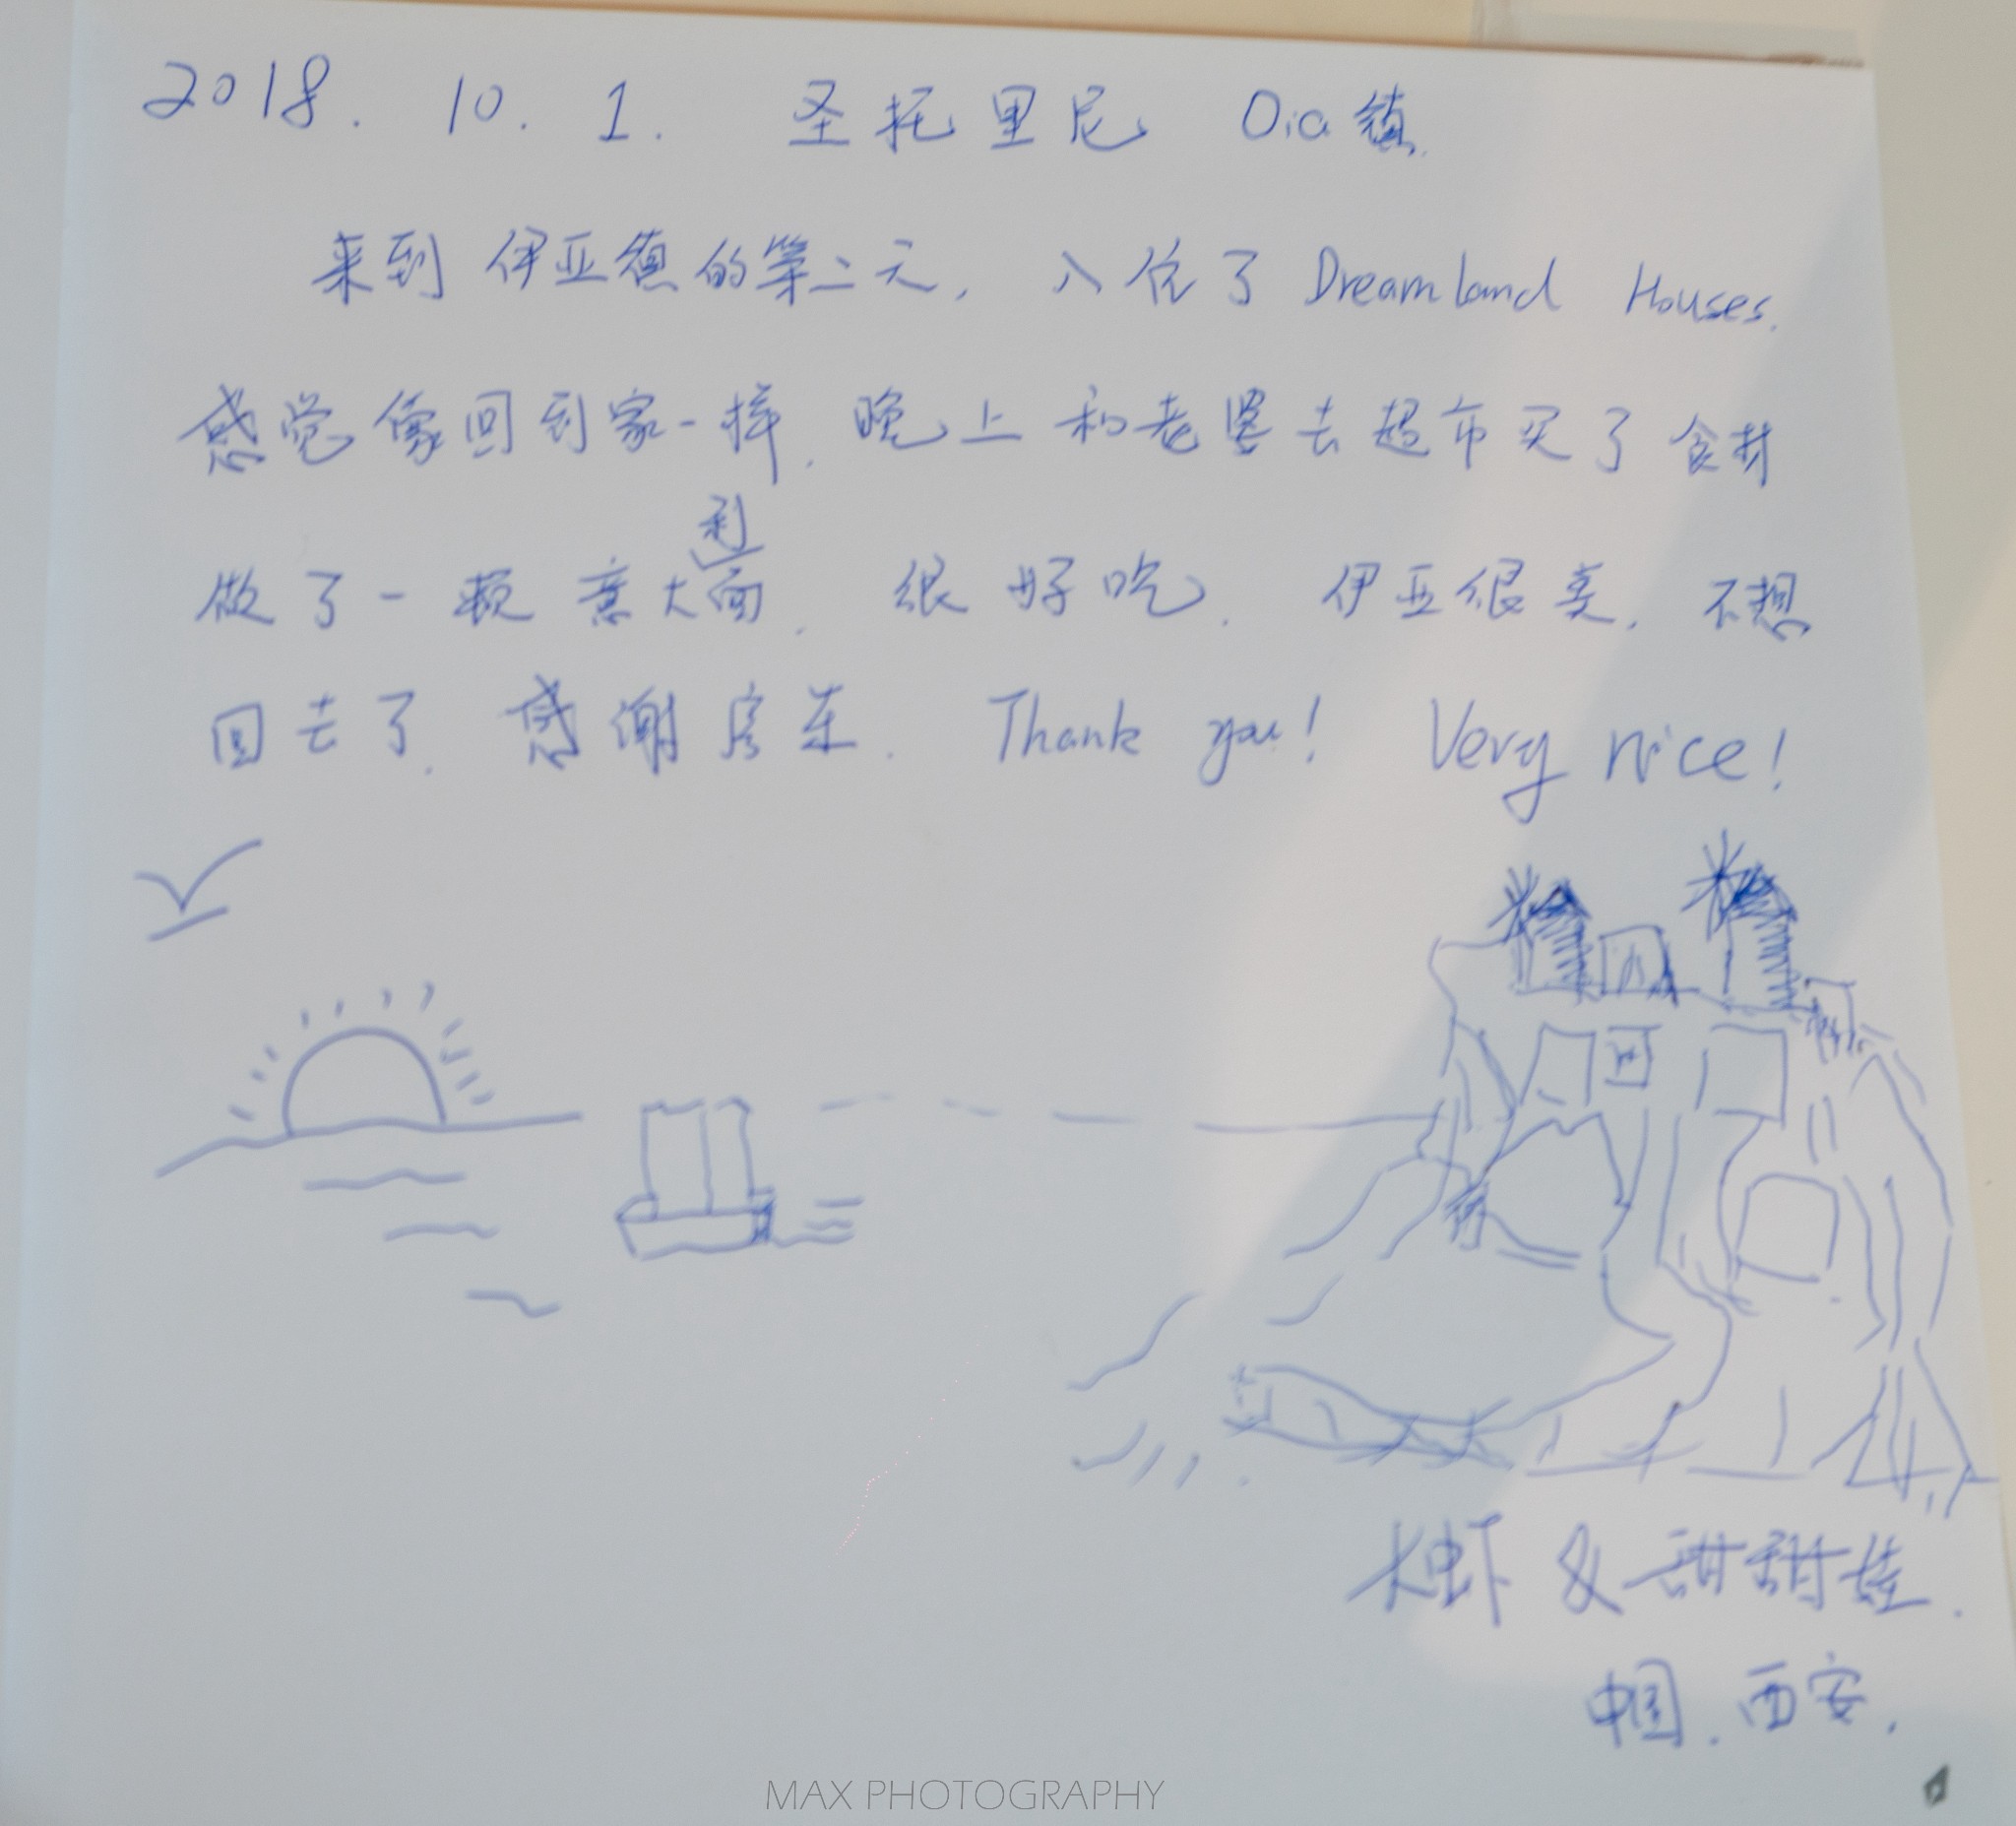 2018. 10. 1. 圣托里尼 Oia镇.
来到伊亚镇的第二天, 入住了 Dreamland Houses.
感觉像回到家一样. 晚上和老婆去超市买了食材
做了一顿意大利面. 很好吃. 伊亚很美. 不想
回去了. 感谢房东. Thank you! Very nice!
大虾 & 甜甜娃.
中国. 西安.
MAX PHOTOGRAPHY